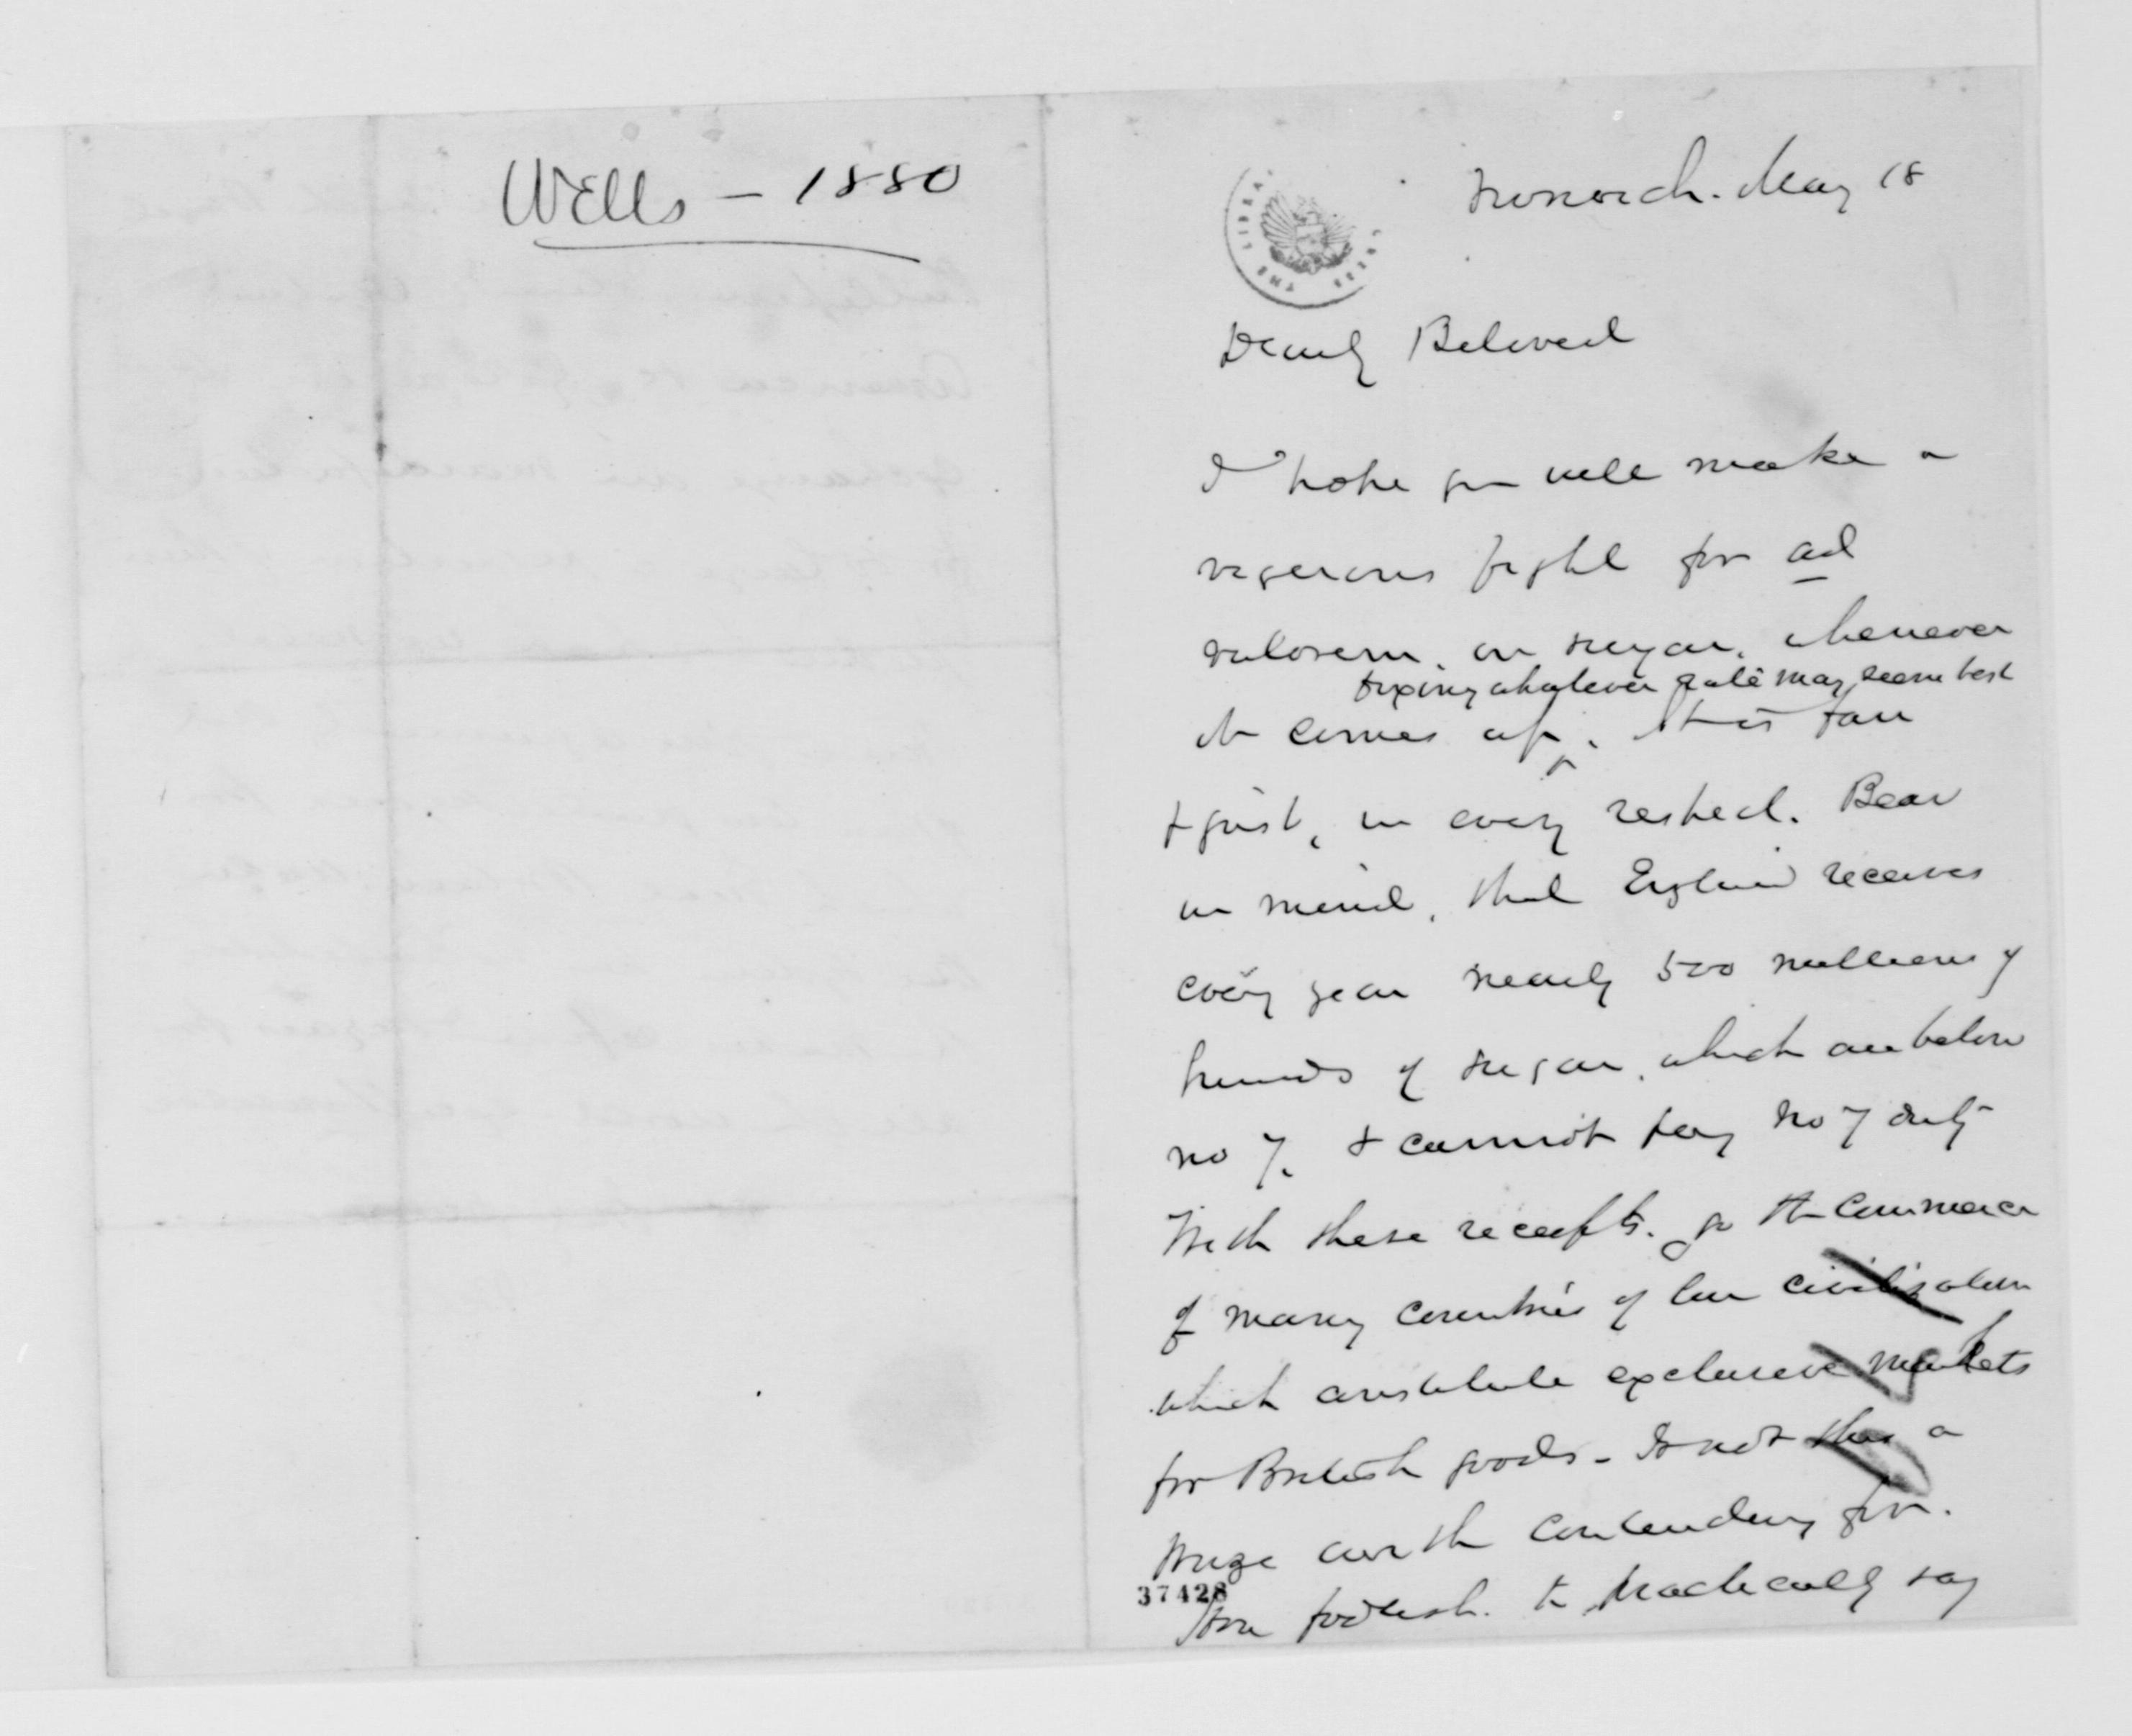 Wells - 1880
Norwich. May 18
Dearly Beloved
I hope you will make a
vigorous fight for ad
valorem, on sugar, whenever
fixing whatever rate may seem best
it comes up. It is fair
& just, in every respect. Bear
in mind, that England receives
every year nearly 500 millions of
pounds of sugar, which are below
no 7, & cannot pay no 7 duty
With these receipts. go the commerce
of many countries of low civilization
which constitute exclusive markets
for British goods - Is not this a
prize worth contending for.
37428
How foolish. to practically say